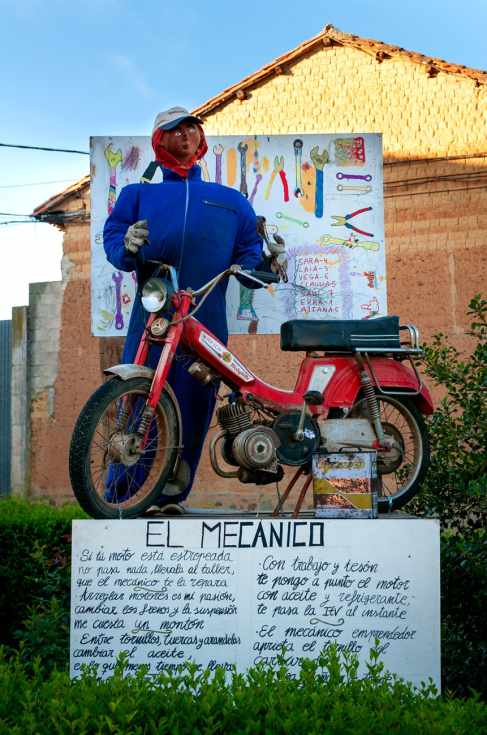 SARA-4
LAIA-5
VEGA-6
CLAUDIA5
SAUL 7
AITANA5
EL MECÁNICO
Si tu moto está estropeada
no pasa nada, llévala al taller,
que el mecánico te la repara
Arreglar motores es mi pasión,
cambiar los frenos y la suspensión
me cuesta un montón
Entre tornillos, tuercas y arandelas
cambiar el aceite
es lo que menos tiempo se lleva
Con trabajo y tesón
te pongo a punto el motor
con aceite y refrigerante,
te pasa la ITV al instante
El mecánico emprendedor
aprieta el tornillo del